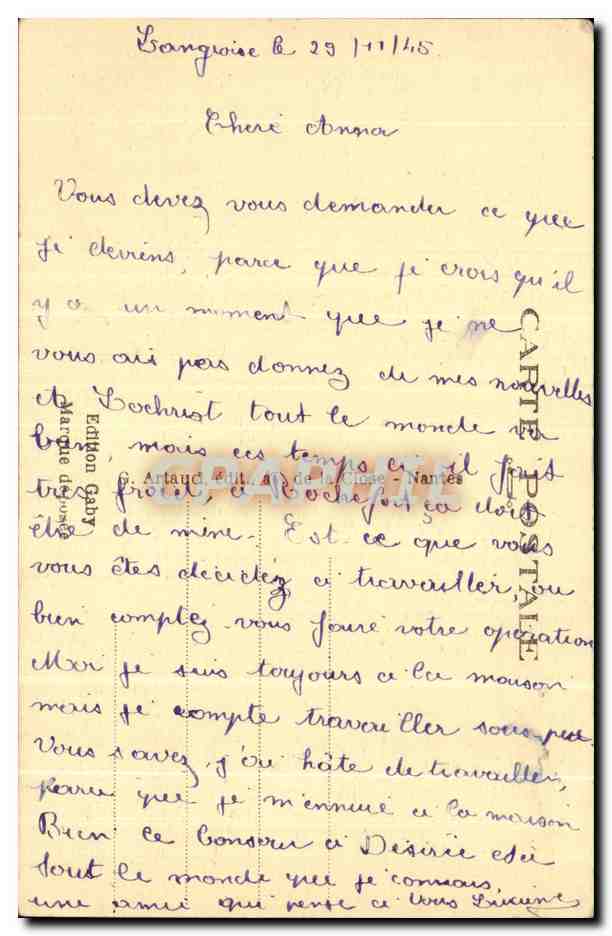 le 29/11/45
Cheré Anna
Vous devez vous demander ce que
je deviens, parce que je crois qu'il
y a un moment que je ne
vous ais pas donnez de mes nouvelles
A Lochrist tout le monde va
bien, mais ces temps ci il fait
très froid, à Rochefort ça doit
être de même. Est ce que vous
vous êtes décidéz à travailler, ou
bien comptez-vous faire votre opération
Moi je suis toujours à la maison
mais je compte travailler sous peu.
Vous savez, j'ai hâte de travailler,
parce que je m'ennuie à la maison
Bien le bonsoir à Désirée et à
tout le monde que je connais,
une amie qui pense à vous
CARTE POSTALE
G. Artaud, édit., de la Close - Nantes
Edition Gaby
Marque déposée
CPARTL